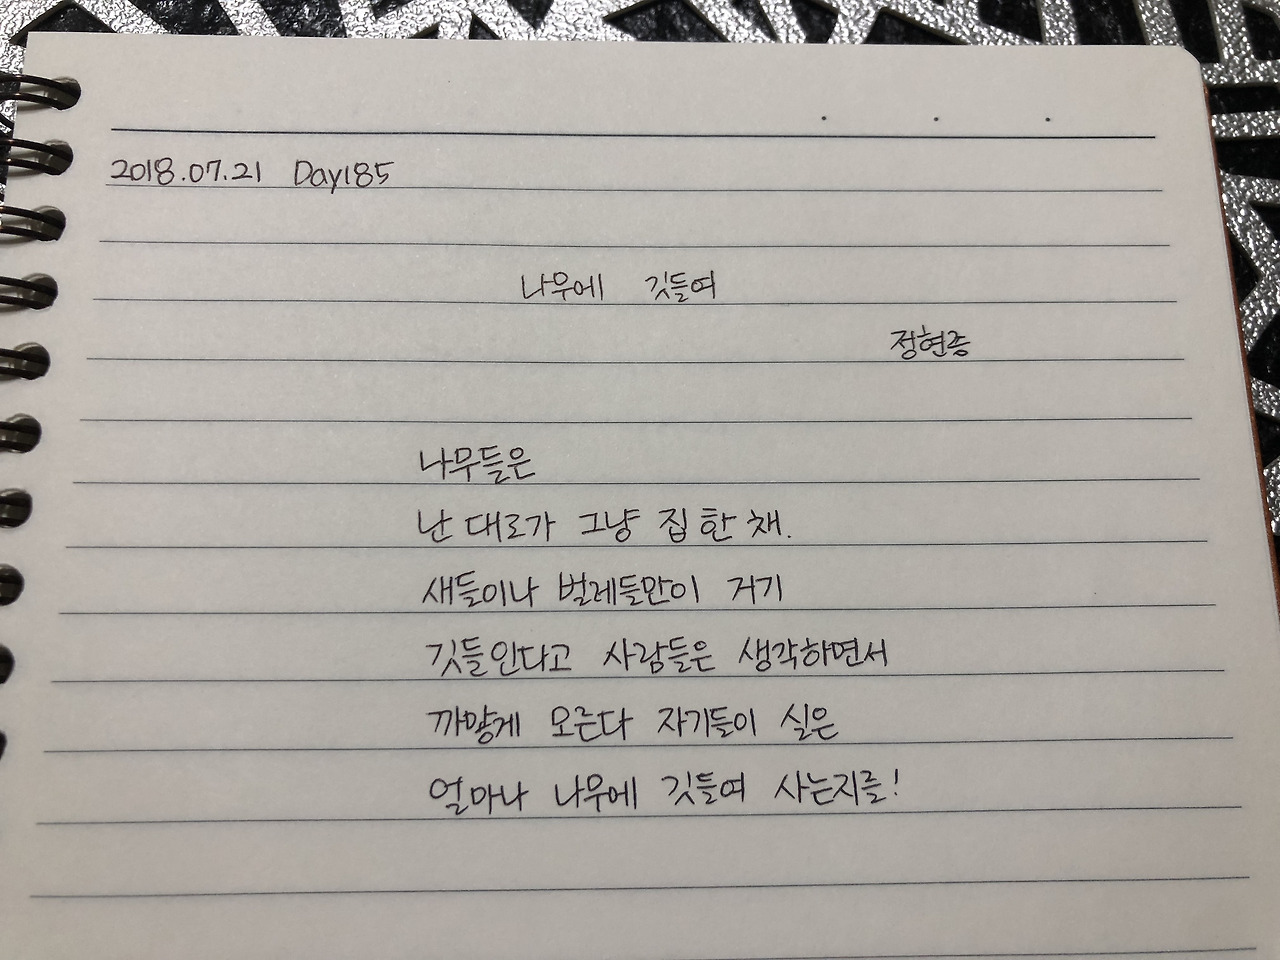 2018.07.21 Day185
나무에 깃들여
정현종
나무들은
난 대로가 그냥 집 한 채.
새들이나 벌레들만이 거기
깃들인다고 사람들은 생각하면서
까맣게 모른다 자기들이 실은
얼마나 나무에 깃들여 사는지를!